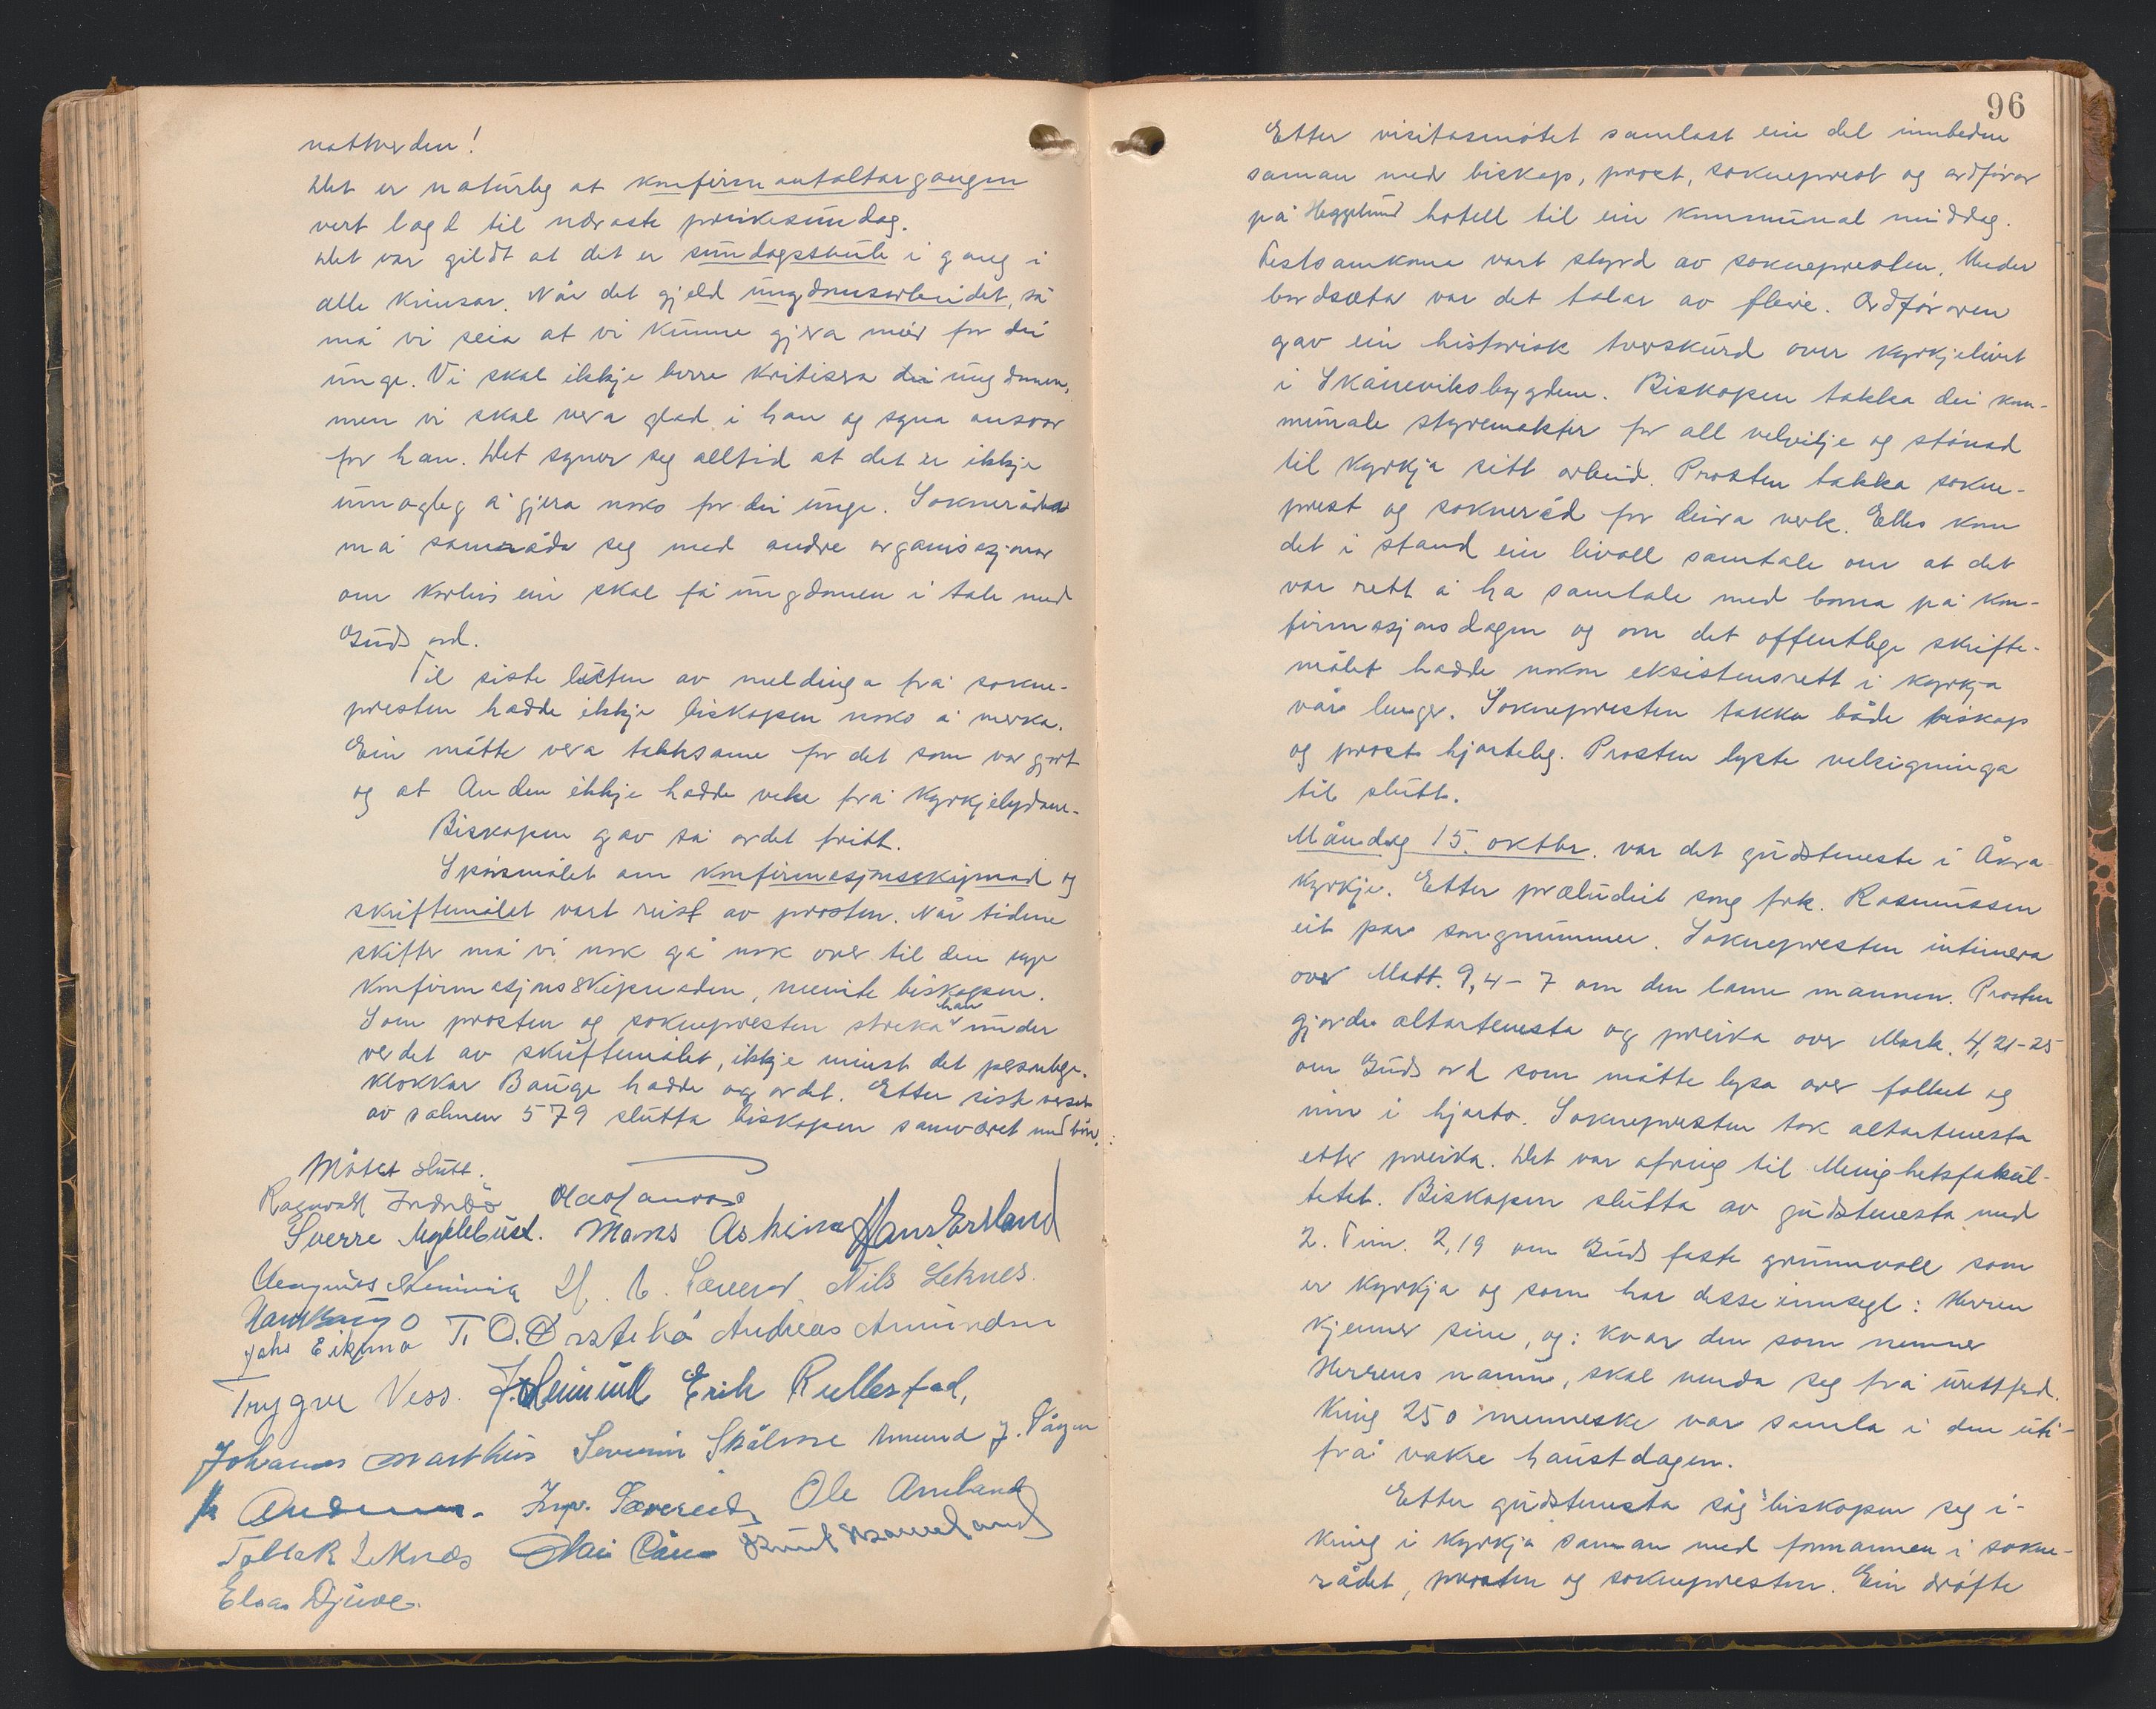 nattverden!
Det er naturleg at konfirmantaltargangen
vert lagt til næraste preikesundag.
Det var gildt at det er sundagsskule i gang i
alle krinsar. Når det gjeld ungdomsarbeidet, så
må vi seia at vi kunne gjera meir for dei
unge. Vi skal ikkje berre kritisera dei ungdomen,
men vi skal vera glad i han og syna ansvar
for han. Det syner seg alltid at det er ikkje
umogleg å gjera noko for dei unge. Sokneråda
må samråda seg med andre organisasjonar
om korleis ein skal få ungdomen i tale med
Guds ord.
Til siste luten av meldinga frå sokne-
presten hadde ikkje biskopen noko å merka.
Ein måtte vera takksame for det som var gjort
og at Anden ikkje hadde veke frå kyrkjelydane.
Biskopen gav så ordet fritt.
Spørsmålet om konfirmasjonsskipnad og
skriftemålet vart reist av prosten. Når tidene
skifter må vi nok gå nok over til den nye
konfirmasjonsskipnaden, meinte biskopen.
Som prosten og soknepresten streka han under
verdet av skriftemålet, ikkje minst det personlege.
Klokkar Bauge hadde og ordet. Etter siste verset
av salmen 579 slutta biskopen samværet med bøn.
Møtet slutt.
Ragnvald Indrebø Olaf
Sverre Myklebust. Mons Asheim Hans Ersland
Magnus Sævereid Nils Leknes.
Johs Eikemo T. O. Andreas Amundsen
Trygve Ness. Erik Rullestad,
Johannes Marthus Severin Skålnes Amund J. Vågen
Ingv. Sævereid Ole Arneland
Tollak Leknes Knut
Elias Djuve.
96
Etter visitasmøtet samlast ein del innbedne
saman med biskop, prost, sokneprest og ordførar
på Heggelund hotell til ein kommunal middag.
Festsamkoma vart styrd av soknepresten. Under
bordsæta var det talar av fleire. Ordføraren
gav ein historisk tverskurd over kyrkjelivet
i Skåneviksbygdene. Biskopen takka dei kom-
munale styremakter for all velvilje og stønad
til kyrkja sitt arbeid. Prosten takka sokne-
prest og sokneråd for deira verk. Elles kom
det i stand ein livall samtale om at det
var rett å ha samtale med borna på kon-
firmasjonsdagen og om det offentlege skrifte-
målet hadde nokon eksistensrett i kyrkja
vår lenger. Soknepresten takka både biskop
og prost hjarteleg. Prosten lyste velsigninga
til slutt.
Måndag 15. oktbr. var det gudsteneste i Åkra
kyrkje. Etter præludiet song frk. Rasmussen
eit par songnummer. Soknepresten intimera
over Matt. 9,4-7 om den lame mannen. Prosten
gjorde altarteneste og preika over Mark. 4,21-25
om Guds ord som måtte lysa over folket og
inn i hjarto. Soknepresten tok altartenesta
etter preika. Det var ofring til Menighetsfakul-
tetet. Biskopen slutta av gudstenesta med
2. Tim. 2,19 om Guds faste grunnvoll som
er kyrkja og som har desse innsegl: Herren
kjenner sine, og: kvar den som nemner
Herrens namn, skal venda seg frå urettferd.
Kring 250 menneske var samla i den uti-
frå vakre haustdagen.
Etter gudstenesta såg biskopen seg i-
kring i kyrkja saman med formannen i sokne-
rådet, prosten og soknepresten. Ein drøfte